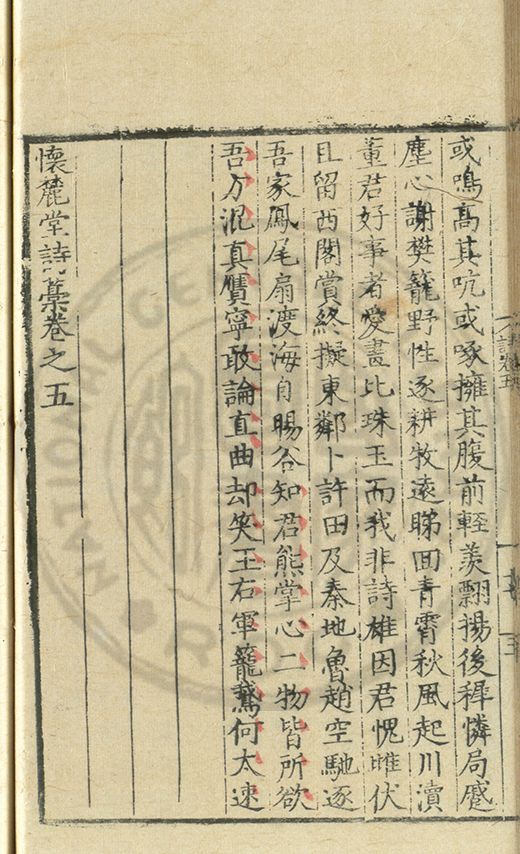 或鳴高其吭或啄擁其腹前輕羨翾揚後稺憐局蹙
塵心謝樊籠野性逐耕牧遠睇回青霄秋風起川瀆
董君好事者愛畫比珠玉而我非詩雄因君愧雌伏
且留西閣賞終擬東鄰卜許田及秦地魯趙空馳逐
吾家鳳尾扇渡海自暘谷知君熊掌心二物皆所欲
吾方混真贋寧敢論直曲却笑王右軍籠鵞何太速
懷麓堂詩藁卷之五